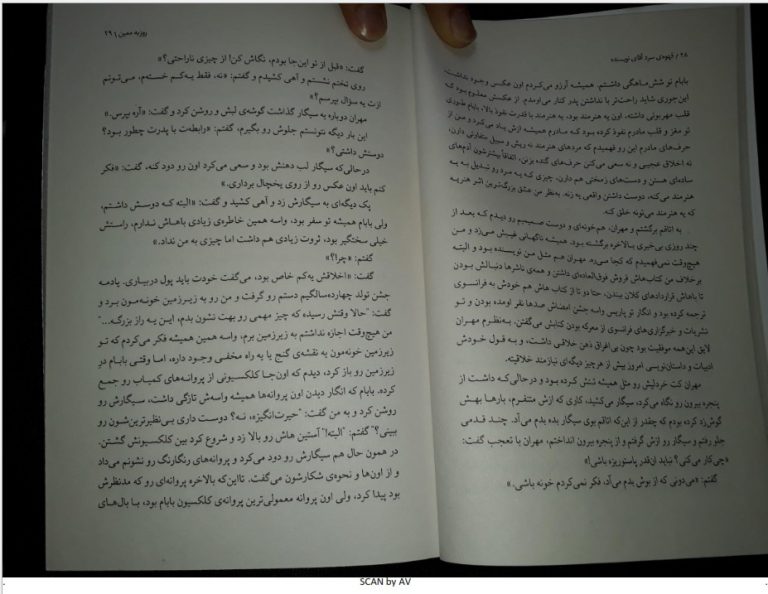 ۲۸ / قهوه‌ی سرد آقای نویسنده
بابام تو شش‌ماهگی داشتم. همیشه آرزو می‌کردم اون عکس وجود نداشت.
این‌جوری شاید راحت‌تر با نداشتن پدر کنار می‌اومدم. از عکسش معلوم بود که
قلب مهربونی داشته. اون یه هنرمند بود، یه هنرمند با قدرت نفوذ بالا، بابام طوری
تو مغز و قلب مادرم نفوذ کرده بود که مادرم همیشه ازش یاد می‌کرد و من از
حرف‌های مادرم این رو فهمیدم که مردهای هنرمند نه ریش و سبیل متفاوتی دارن،
نه اخلاق عجیبی و نه سعی می‌کنن حرف‌های گنده بزنن، اتفاقاً بیشترشون آدم‌های
ساده‌ای هستن و دست‌های زمختی هم دارن، چیزی که یه مرد رو تبدیل به یه
هنرمند می‌کنه، دوست داشتن واقعی یه زنه. به‌نظر من عشق بزرگ‌ترین اثر هنریه
که یه هنرمند می‌تونه خلق کنه.
به اتاقم برگشتم و مهران، هم‌خونه‌ای و دوست صمیمیم رو دیدم که بعد از
چند روزی بی‌خبری بالاخره برگشته بود. همیشه ناگهانی غیبش می‌زد و من
هیچ‌وقت نمی‌فهمیدم که کجا می‌ره. مهران هم مثل من نویسنده بود و البته
برخلاف من کتاب‌هاش فروش فوق‌العاده‌ای داشتن و همه‌ی ناشرها دنبالش بودن
تا باهاش قراردادهای کلان ببندن، حتا دو تا از کتاب هاش هم خودش به فرانسوی
ترجمه کرده بود و انگار تو پاریس واسه جشن امضاش صدها نفر اومده بودن و تو
نشریات و خبرگزاری‌های فرانسوی از معرکه بودن کتابش می‌گفتن. به‌نظرم مهران
لایق این همه موفقیت بود چون بی‌اغراق ذهن خلاقی داشت، و به قول خودش
ادبیات و داستان‌نویسی امروز بیش از هرچیز دیگه‌ای نیازمند خلاقیته.
مهران کت خردلیش رو مثل همیشه تنش کرده بود و درحالی‌که داشت از
پنجره بیرون رو نگاه می‌کرد، سیگار می‌کشید، کاری که ازش متنفرم، بارها بهش
گوش‌زد کرده بودم که چقدر از این‌که اتاقم بوی سیگار بده بدم می‌آد. چند قدمی
جلو رفتم و سیگار رو ازش گرفتم و از پنجره بیرون انداختم، مهران با تعجب گفت:
«چی‌کار می‌کنی؟ نباید ان‌قدر پاستوریزه باشی!»
گفتم: «می‌دونی که از بوش بدم می‌آد، فکر نمی‌کردم خونه باشی.»
روزبه معین / ۲۹
گفت: «قبل از تو این‌جا بودم، نگاش کن! از چیزی ناراحتی؟»
روی تختم نشستم و آهی کشیدم و گفتم: «نه، فقط یه‌کم خستم، می‌تونم
ازت یه سؤال بپرسم؟»
مهران دوباره یه سیگار گذاشت گوشه‌ی لبش و روشن کرد و گفت: «آره بپرس.»
این بار دیگه نتونستم جلوش رو بگیرم، گفتم: «رابطه‌ت با پدرت چطور بود؟
دوستش داشتی؟»
درحالی‌که سیگار لب دهنش بود و سعی می‌کرد اون رو دود کنه، گفت: «فکر
کنم باید اون عکس رو از روی یخچال برداری.»
پک دیگه‌ای به سیگارش زد و آهی کشید و گفت: «البته که دوسش داشتم،
ولی بابام همیشه تو سفر بود، واسه همین خاطره‌ی زیادی باهاش ندارم، راستش
خیلی سختگیر بود، ثروت زیادی هم داشت اما چیزی به من نداد.»
گفتم: «چرا؟»
گفت: «اخلاقش یه‌کم خاص بود، می‌گفت خودت باید پول دربیاری. یادمه
جشن تولد چهارده‌سالگیم دستم رو گرفت و من رو به زیرزمین خونه‌مون برد و
گفت: "حالا وقتش رسیده که چیز مهمی رو بهت نشون بدم، این یه راز بزرگه..."
من هیچ‌وقت اجازه نداشتم به زیرزمین برم، واسه همین همیشه فکر می‌کردم که تو
زیرزمین خونه‌مون یه نقشه‌ی گنج یا یه راه مخفی وجود داره، اما وقتی بابام در
زیرزمین رو باز کرد، دیدم که اون‌جا کلکسیونی از پروانه‌های کمیاب رو جمع
کرده. بابام که انگار دیدن اون پروانه‌ها همیشه واسه‌ش تازگی داشت، سیگارش رو
روشن کرد و به من گفت: "حیرت‌انگیزه، نه؟ دوست داری بی‌نظیرترین‌شون رو
ببینی؟" گفتم: "البته!" آستین هاش رو بالا زد و شروع کرد بین کلکسیونش گشتن.
در همون حال هم سیگارش رو دود می‌کرد و پروانه‌های رنگارنگ رو نشونم می‌داد
و از اون‌ها و نحوه‌ی شکارشون می‌گفت. تااین‌که بالاخره پروانه‌ای رو که مدنظرش
بود پیدا کرد، ولی اون پروانه معمولی‌ترین پروانه‌ی کلکسیون بابام بود، با بال‌های
SCAN by AV